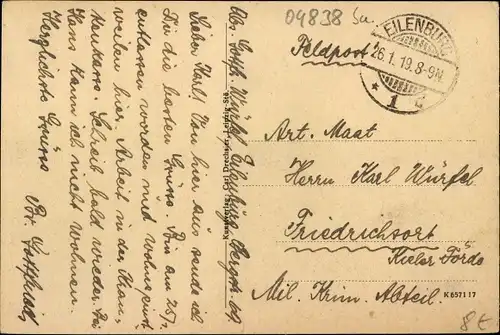 04838 Sa.
EILENBURG
26.1.19.8-9N.
* 1 d
Feldpost
Art. Maat
Herrn Karl Würfel
Friedrichsort
Kieler Förde
Mil. Krim. Abteil.
K 6571 17
8€
Abs. Gotth. Würfel, Eilenburg, Bergstr.
Lieber Karl! Von hier aus sende ich
Dir die besten Grüße. Bin am 25/1.
entlassen worden und wohne einst-
weilen hier. Arbeit in der Kran-
kenkasse. Schreib bald wieder. Bei
Hans kann ich nicht wohnen.
Herzlichste Grüße
Br. Gotthard